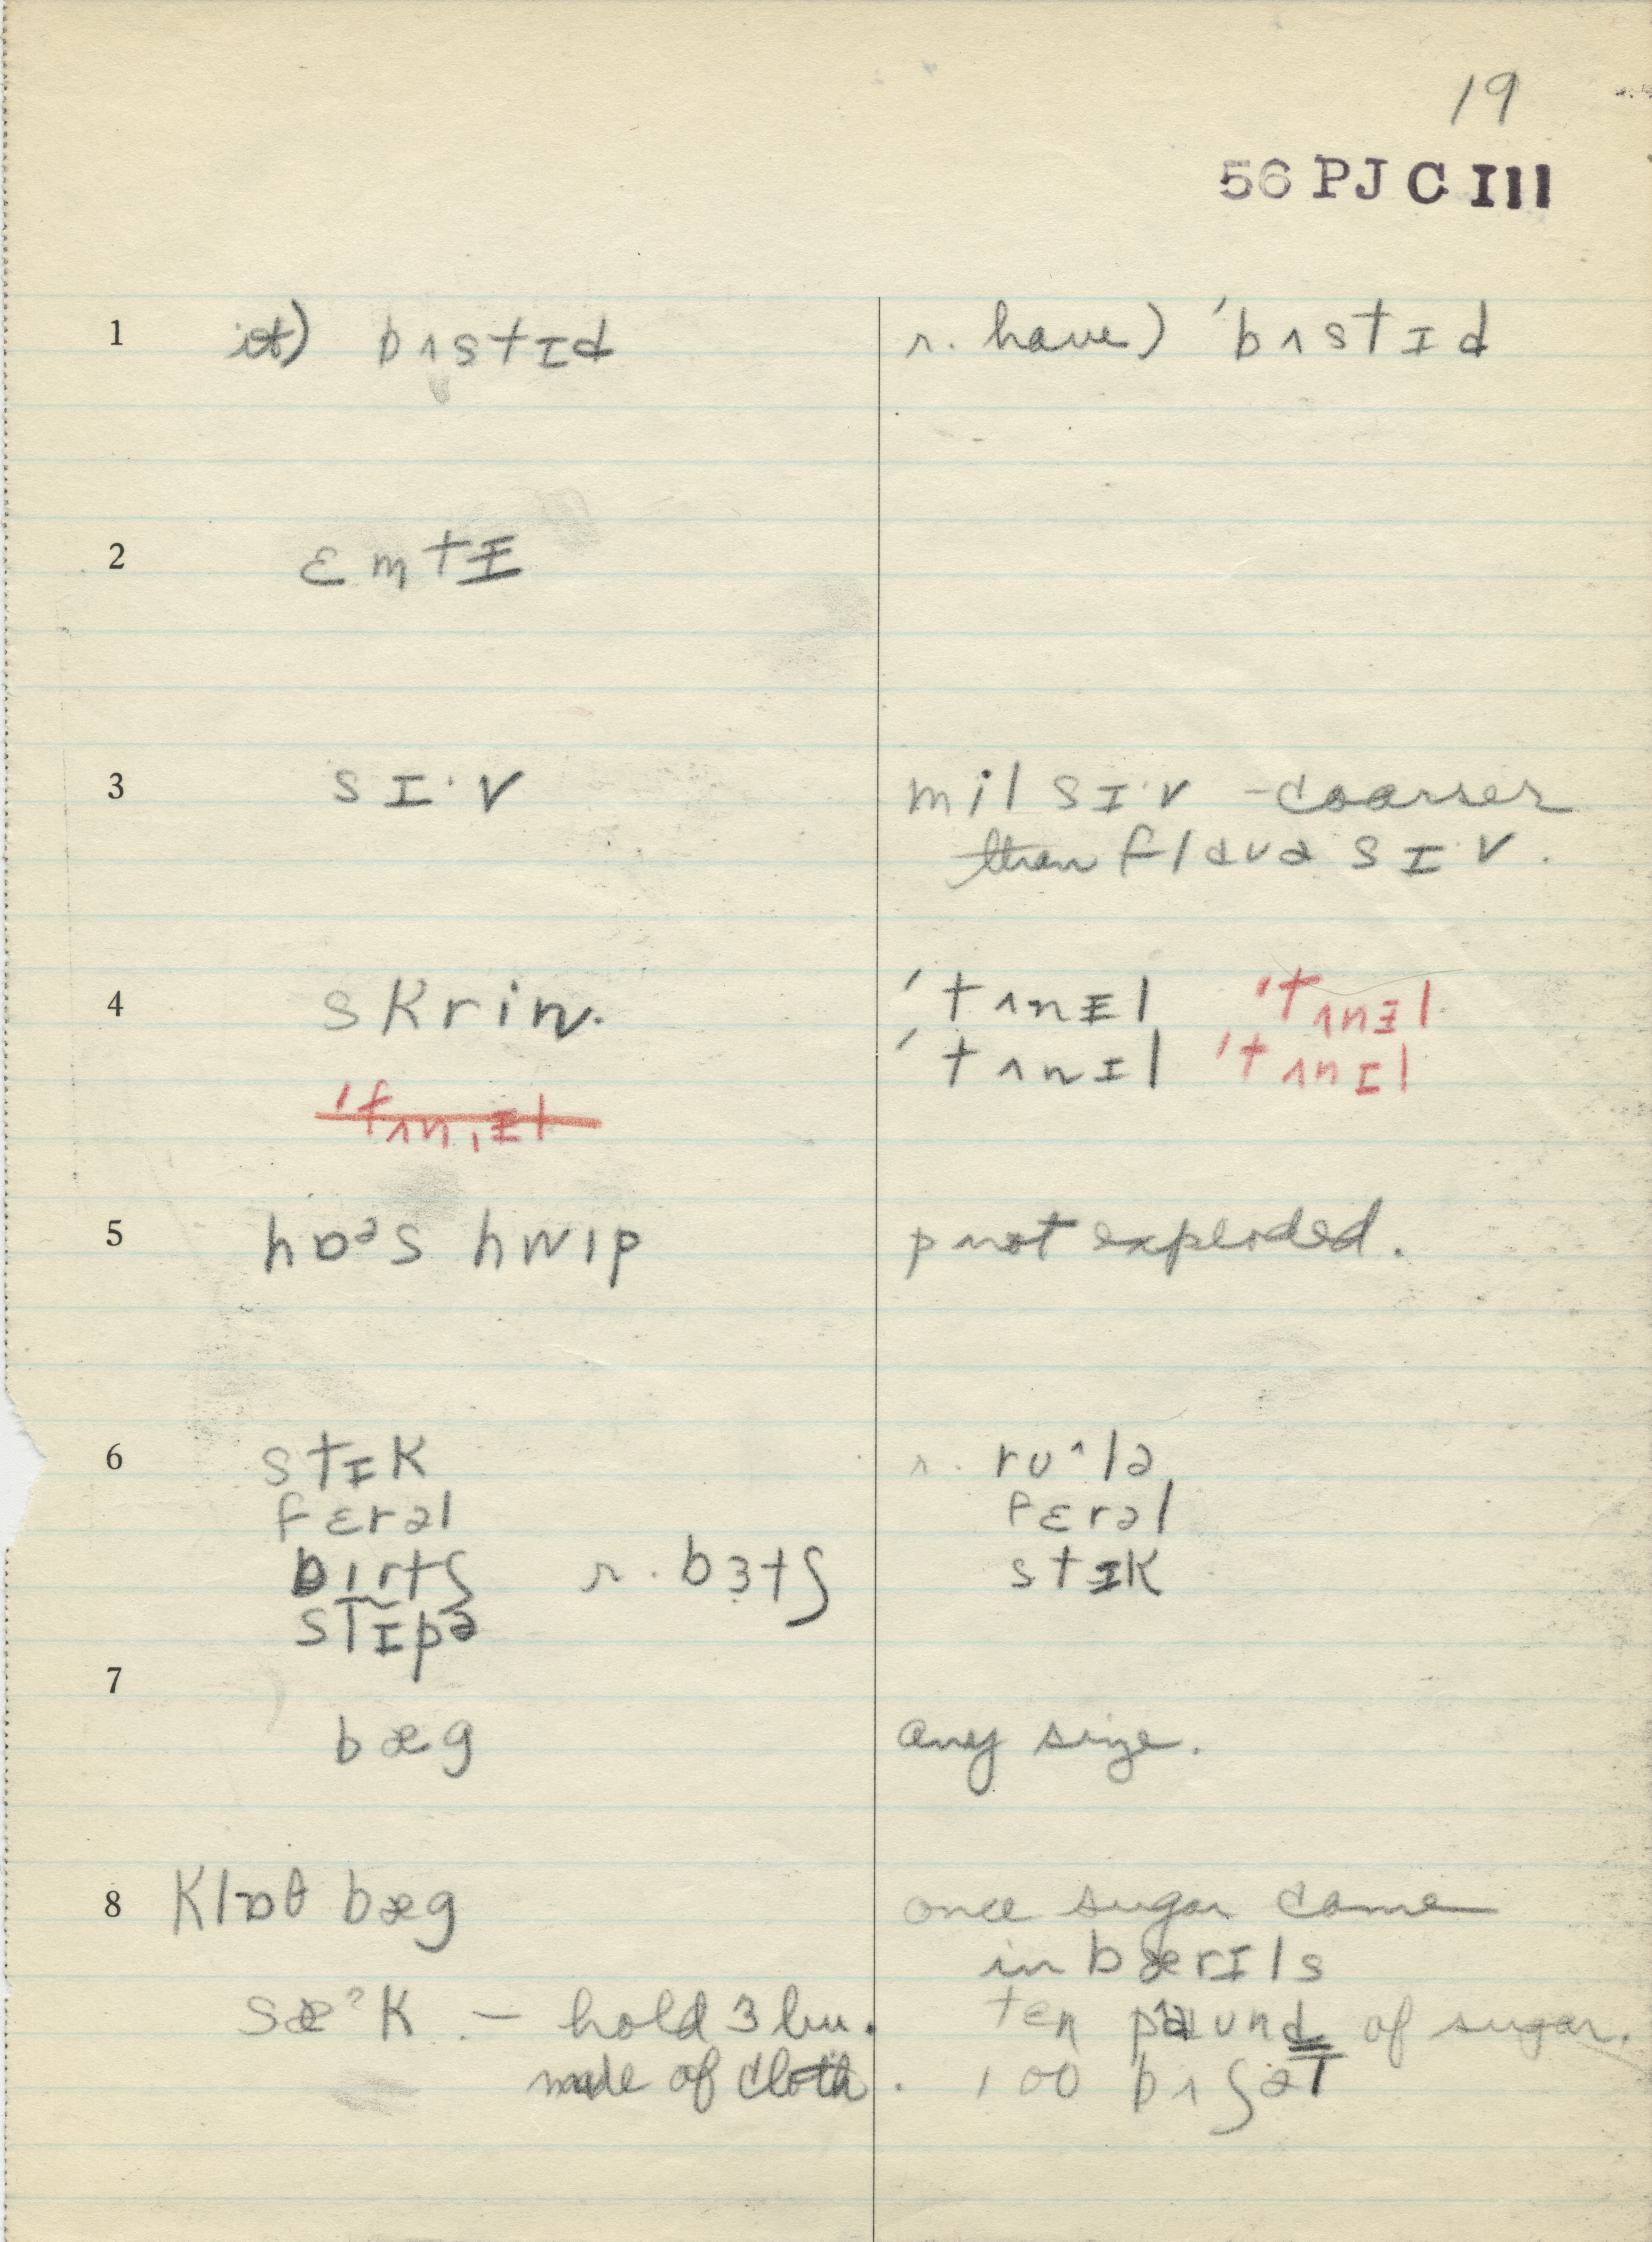 19
56 PJ C III
1 it) bʌstɪd r. have) 'bʌstɪd
2 ɛmtɪ
3 sɪ·v mil sɪ·v – coarser
than flɑuə sɪ·v.
4 skrin. 'tʌnɨl 'tʌnɨl
'tʌnɪl 'tʌnɪl
5 hɒᵊs hwip p not exploded.
6 stɪk r. ru^lə
fɛrəl fɛrəl
birtʃ r. bɜtʃ stɪk
stɪpə
7
bæg any size.
8 klɒθ bæg once sugar came
in bærɪls
sæˀk. – hold 3 bu. ten paund of sugar.
made of cloth. 100 bʌʃəT